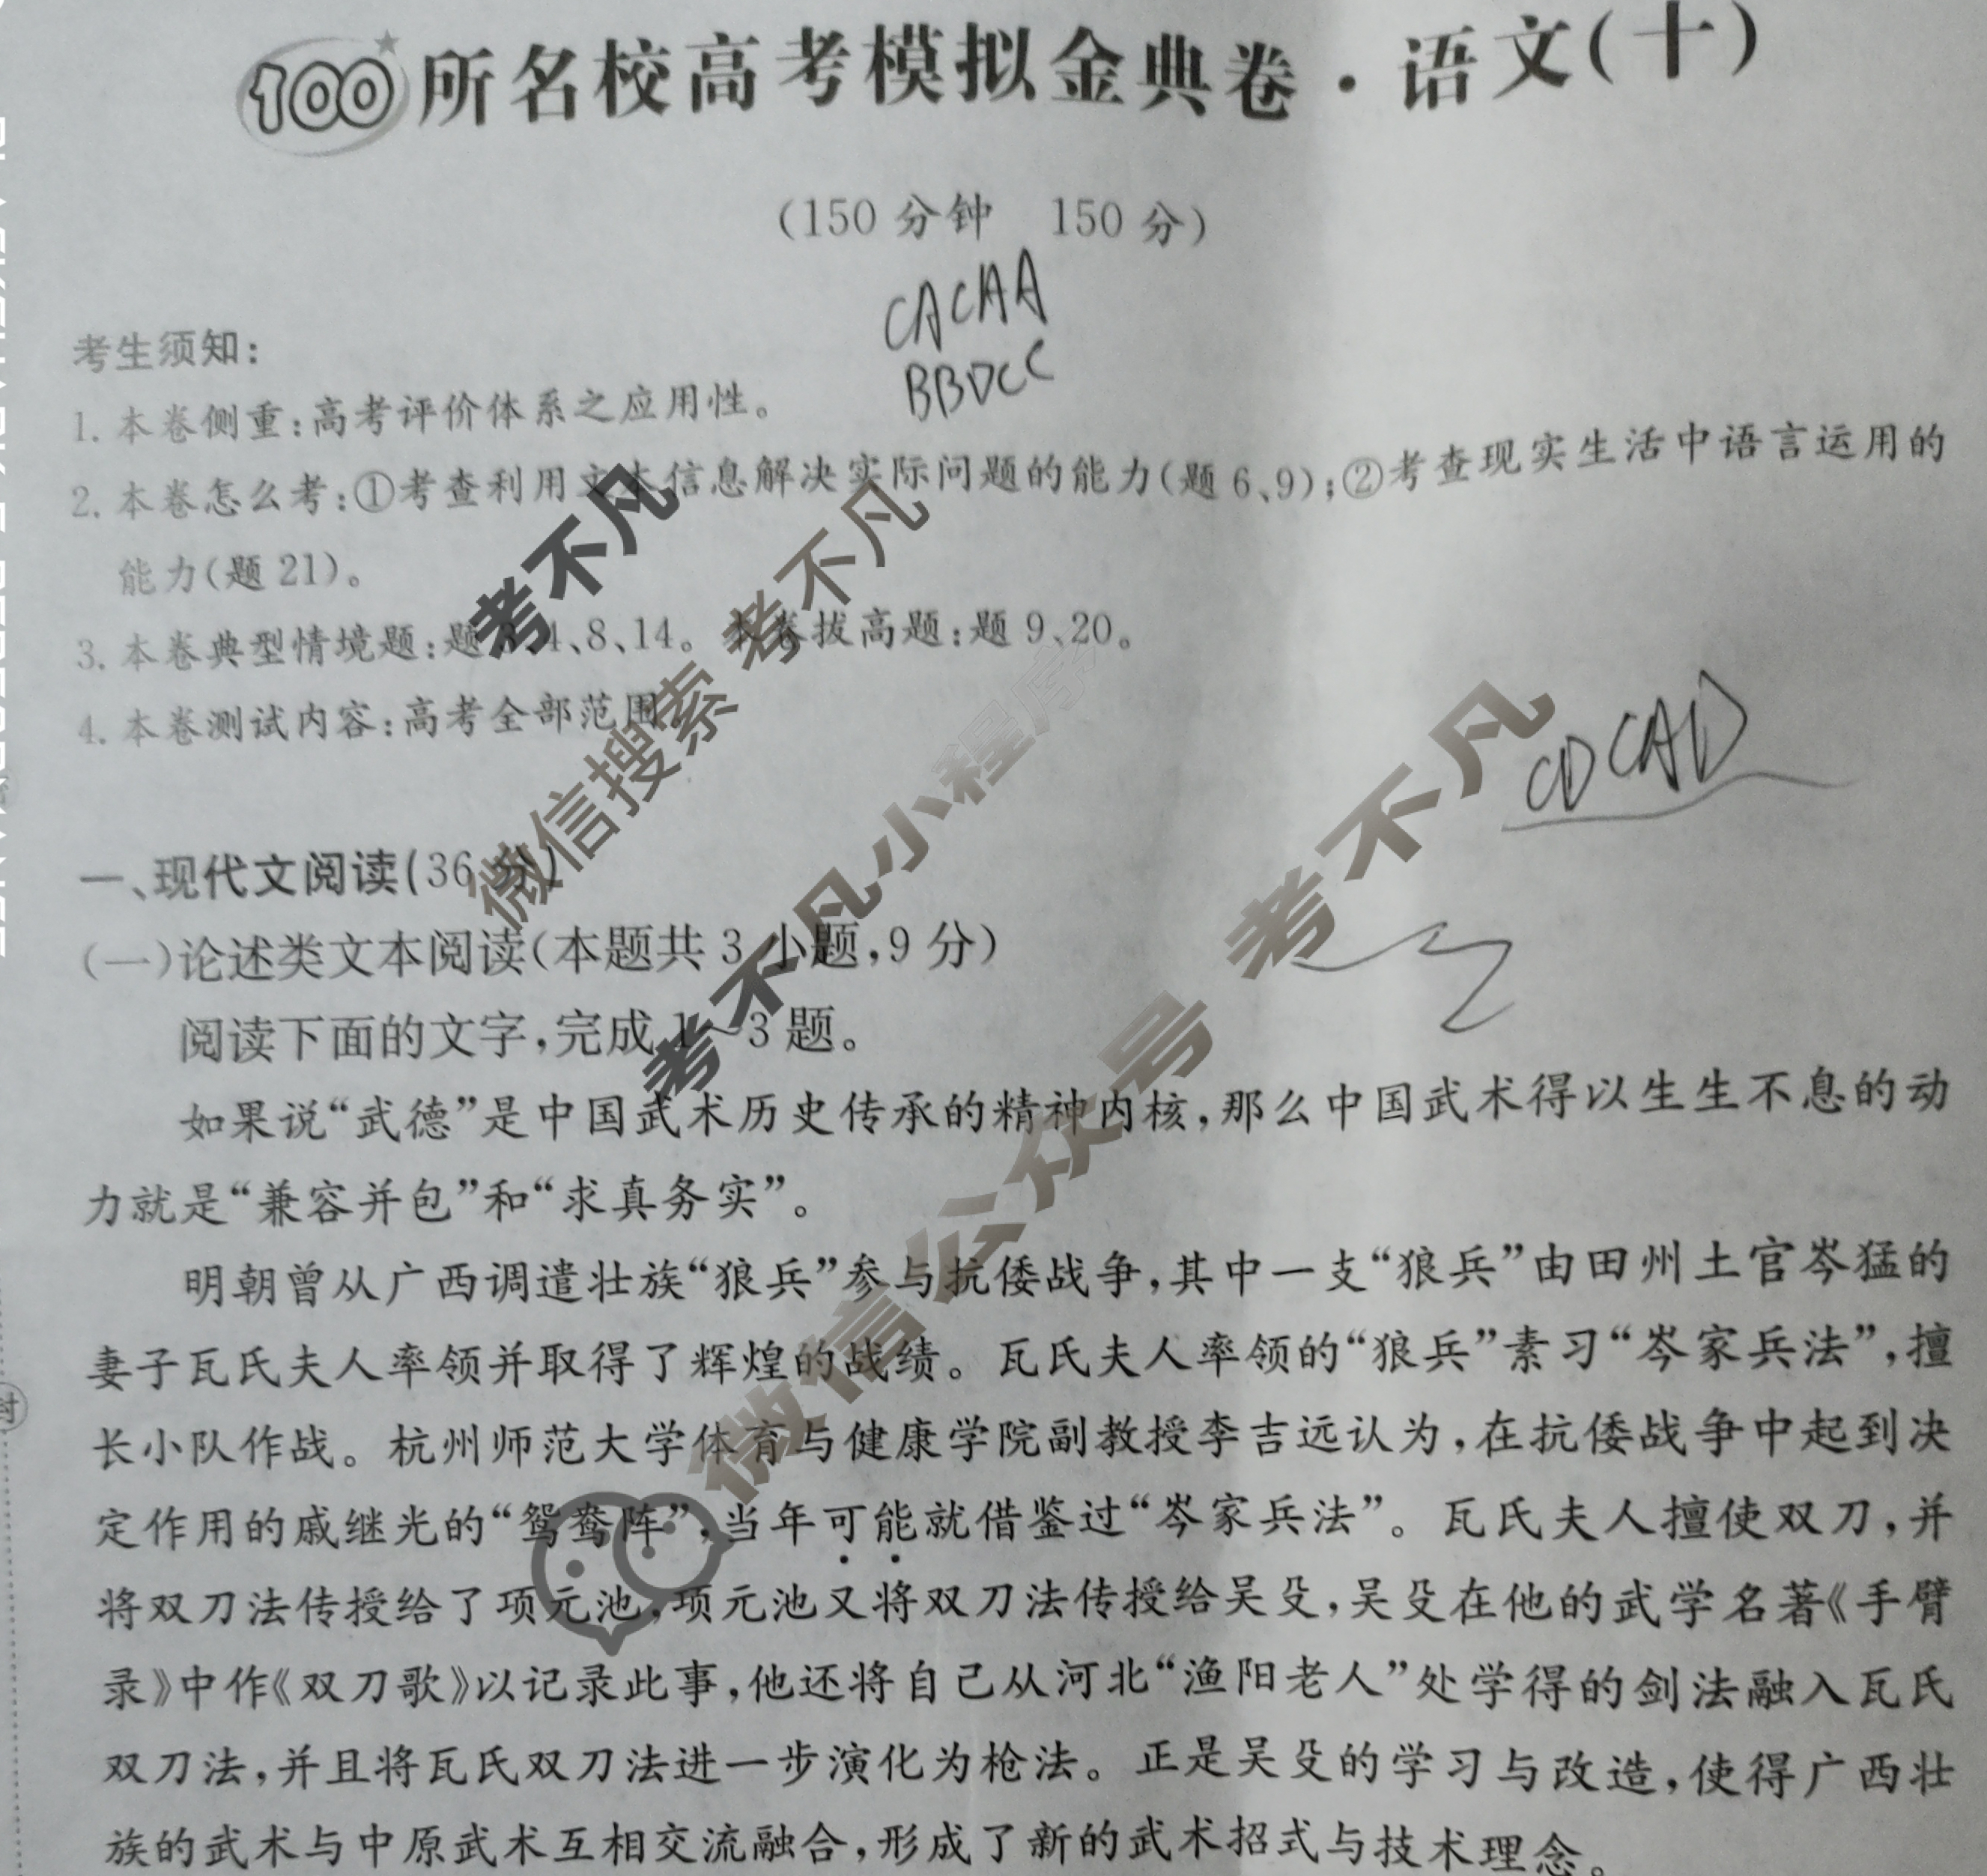 100所名校高考模拟金典卷·语文(十)
(150分钟 150分)
CACAA
BBDCC
考生须知:
1. 本卷侧重:高考评价体系之应用性。
2. 本卷怎么考:①考查利用文本信息解决实际问题的能力(题6、9);②考查现实生活中语言运用的
能力(题21)。
3. 本卷典型情境题:题3、4、8、14。本卷拔高题:题9、20。
4. 本卷测试内容:高考全部范围。
CDCAD
一、现代文阅读(36分)
(一)论述类文本阅读(本题共3小题,9分)
阅读下面的文字,完成1~3题。
如果说“武德”是中国武术历史传承的精神内核,那么中国武术得以生生不息的动
力就是“兼容并包”和“求真务实”。
明朝曾从广西调遣壮族“狼兵”参与抗倭战争,其中一支“狼兵”由田州土官岑猛的
妻子瓦氏夫人率领并取得了辉煌的战绩。瓦氏夫人率领的“狼兵”素习“岑家兵法”,擅
长小队作战。杭州师范大学体育与健康学院副教授李吉远认为,在抗倭战争中起到决
定作用的戚继光的“鸳鸯阵”,当年可能就借鉴过“岑家兵法”。瓦氏夫人擅使双刀,并
将双刀法传授给了项元池,项元池又将双刀法传授给吴殳,吴殳在他的武学名著《手臂
录》中作《双刀歌》以记录此事,他还将自己从河北“渔阳老人”处学得的剑法融入瓦氏
双刀法,并且将瓦氏双刀法进一步演化为枪法。正是吴殳的学习与改造,使得广西壮
族的武术与中原武术互相交流融合,形成了新的武术招式与技术理念。
考不凡
微信搜索 考不凡
考不凡小程序
微信公众号 考不凡
封